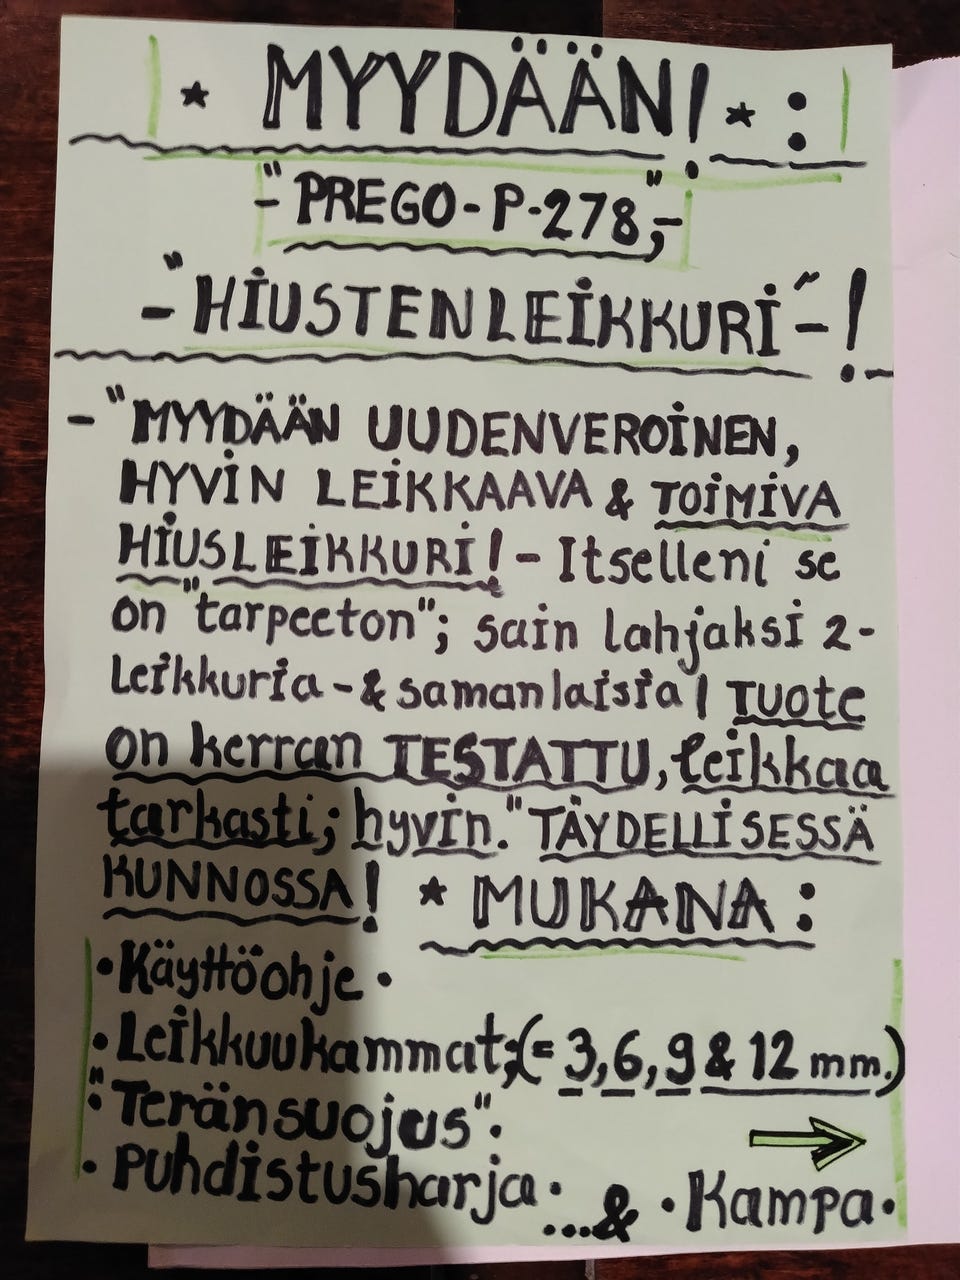 * MYYDÄÄN! * :
-"PREGO-P-278,"-
-"HIUSTENLEIKKURI"-!
-"MYYDÄÄN UUDENVEROINEN,
HYVIN LEIKKAAVA & TOIMIVA
HIUSLEIKKURI! - Itselleni se
on "tarpeeton"; sain lahjaksi 2-
leikkuria - & samanlaisia! Tuote
on kerran TESTATTU, leikkaa
tarkasti; hyvin." TÄYDELLISESSÄ
KUNNOSSA! * MUKANA:
• Käyttöohje •
• Leikkuukammat; (= 3, 6, 9 & 12 mm.)
• "Teränsuojus" •
• Puhdistusharja • ...& • Kampa •